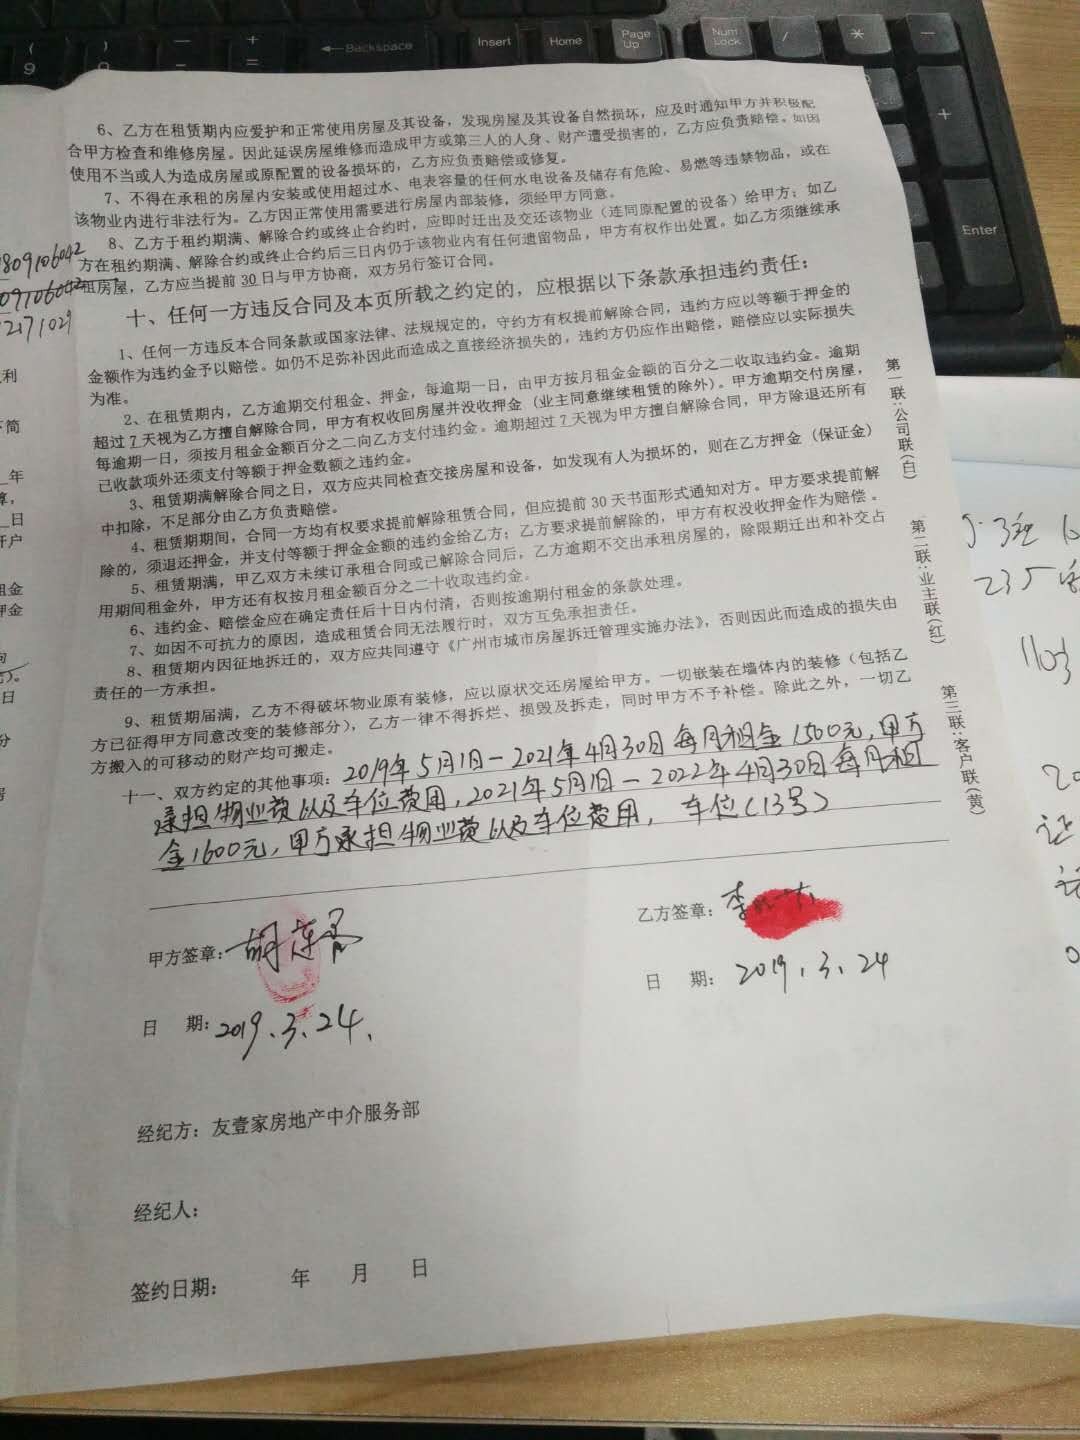 ( 9
) 0
— -
+ =
←Backspace
Insert
Home
Page Up
Num Lock
/
*
—
+
Enter
6、乙方在租赁期内应爱护和正常使用房屋及其设备，发现房屋及其设备自然损坏，应及时通知甲方并积极配
合甲方检查和维修房屋。因此延误房屋维修而造成甲方或第三人的人身、财产遭受损害的，乙方应负责赔偿。如因
使用不当或人为造成房屋或原配置的设备损坏的，乙方应负责赔偿或修复。
7、不得在承租的房屋内安装或使用超过水、电表容量的任何水电设备及储存有危险、易燃等违禁物品，或在
该物业内进行非法行为。乙方因正常使用需要进行房屋内部装修，须经甲方同意。
8、乙方于租约期满、解除合约或终止合约时，应即时迁出及交还该物业（连同原配置的设备）给甲方；如乙
方在租约期满、解除合约或终止合约后三日内仍于该物业内有任何遗留物品，甲方有权作出处置。如乙方须继续承
租房屋，乙方应当提前30日与甲方协商，双方另行签订合同。
十、任何一方违反合同及本页所载之约定的，应根据以下条款承担违约责任：
1、任何一方违反本合同条款或国家法律、法规规定的，守约方有权提前解除合同，违约方应以等额于押金的
金额作为违约金予以赔偿。如仍不足弥补因此而造成之直接经济损失的，违约方仍应作出赔偿，赔偿应以实际损失
为准。
2、在租赁期内，乙方逾期交付租金、押金，每逾期一日，由甲方按月租金金额的百分之二收取违约金。逾期
超过7天视为乙方擅自解除合同，甲方有权收回房屋并没收押金（业主同意继续租赁的除外）。甲方逾期交付房屋，
每逾期一日，须按月租金金额百分之二向乙方支付违约金。逾期超过7天视为甲方擅自解除合同，甲方除退还所有
已收款项外还须支付等额于押金数额之违约金。
3、租赁期满解除合同之日，双方应共同检查交接房屋和设备，如发现有人为损坏的，则在乙方押金（保证金）
中扣除，不足部分由乙方负责赔偿。
4、租赁期期间，合同一方均有权要求提前解除租赁合同，但应提前30天书面形式通知对方。甲方要求提前解
除的，须退还押金，并支付等额于押金金额的违约金给乙方；乙方要求提前解除的，甲方有权没收押金作为赔偿。
5、租赁期满，甲乙双方未续订承租合同或已解除合同后，乙方逾期不交出承租房屋的，除限期迁出和补交占
用期间租金外，甲方还有权按月租金额百分之二十收取违约金。
6、违约金、赔偿金应在确定责任后十日内付清，否则按逾期付租金的条款处理。
7、如因不可抗力的原因，造成租赁合同无法履行时，双方互免承担责任。
8、租赁期内因征地拆迁的，双方应共同遵守《广州市城市房屋拆迁管理实施办法》，否则因此而造成的损失由
责任的一方承担。
9、租赁期届满，乙方不得破坏物业原有装修，应以原状交还房屋给甲方。一切嵌装在墙体内的装修（包括乙
方已征得甲方同意改变的装修部分），乙方一律不得拆烂、损毁及拆走，同时甲方不予补偿。除此之外，一切乙
方搬入的可移动的财产均可搬走。
十一、双方约定的其他事项：2019年5月1日一2021年4月30日每月租金1500元，甲方
承担物业费以及车位费用，2021年5月1日一2022年4月30日每月租
金1600元，甲方承担物业费以及车位费用，车位（13号）
甲方签章：胡
乙方签章：李
日 期：2019.3.24.
日 期：2019.3.24
经纪方：友壹家房地产中介服务部
经纪人：
签约日期： 年 月 日
第一联:公司联(白) 第二联:业主联(红) 第三联:客户联(黄)
809106042
09106042
2171029
利
简
年
日
开户
租金
押金
日
分
235
110